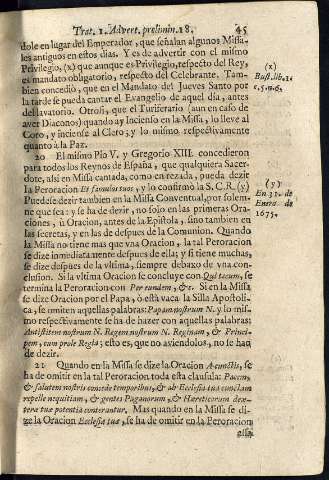 Trat. 1. Advert. prelimin. 18. 45
dole en lugar del Emperador, que señalan algunos Missa-
les antiguos en estos dias. Y es de advertir con el mismo
Privilegio, (x) que aunque es Privilegio, respecto del Rey,
es mandato obligatorio, respecto del Celebrante. Tam-
bien concediò, que en el Mandato del Jueves Santo por
la tarde se pueda cantar el Evangelio de aquel dia, antes
del lavatorio. Otrosi, que el Turiferario (aun en caso de
aver Diaconos) quando ay Incienso en la Missa, lo lleve al
Coro, y inciense al Clero; y lo mismo respectivamente
quanto à la Paz.
20 El mismo Pio V. y Gregorio XIII. concedieron
para todos los Reynos de España, que qualquiera Sacer-
dote, assi en Missa cantada, como en rezada, pueda dezir
la Peroracion Et famulos tuos, y lo confirmò la S.C.R. (y)
Puedese dezir tambien en la Missa Conventual, por solem-
ne que sea: y se ha de dezir, no solo en las primeras Ora-
ciones, ù Oracion, antes de la Epistola, sino tambien en
las secretas, y en las de despues de la Comunion. Quando
la Missa no tiene mas que vna Oracion, la tal Peroracion
se dize inmediatamente despues de ella; y si tiene muchas,
se dize despues de la vltima, siempre debaxo de vna con-
clusion. Si la vltima Oracion se concluye con Qui tecum, se
termina la Peroracion con Per eundem, &c. Si en la Missa
se dize Oracion por el Papa, ò està vaca la Silla Apostoli-
ca, se omiten aquellas palabras: Papam nostrum N. y lo mis-
mo respectivamente se ha de hazer con aquellas palabras:
Antistitem nostrum N. Regem nostrum N. Reginam, & Princi-
pem, cum prole Regia; esto es, que no aviendolos, no se han
de dezir.
21 Quando en la Missa se dize la Oracion A cunctis, se
ha de omitir en la tal Peroracion toda esta clausula: Pacem,
& salutem nostris concede temporibus, & ab Ecclesia tua cunctam
repelle nequitiam, & gentes Paganorum, & Hæreticorum dex-
teræ tuæ potentia conterantur. Mas quando en la Missa se di-
ze la Oracion Ecclesiæ tuæ, se ha de omitir en la Peroracion
(x)
Bust. lib. 1.
c. 5. n. 6.
(y)
En 31. de
Enero de
1675.